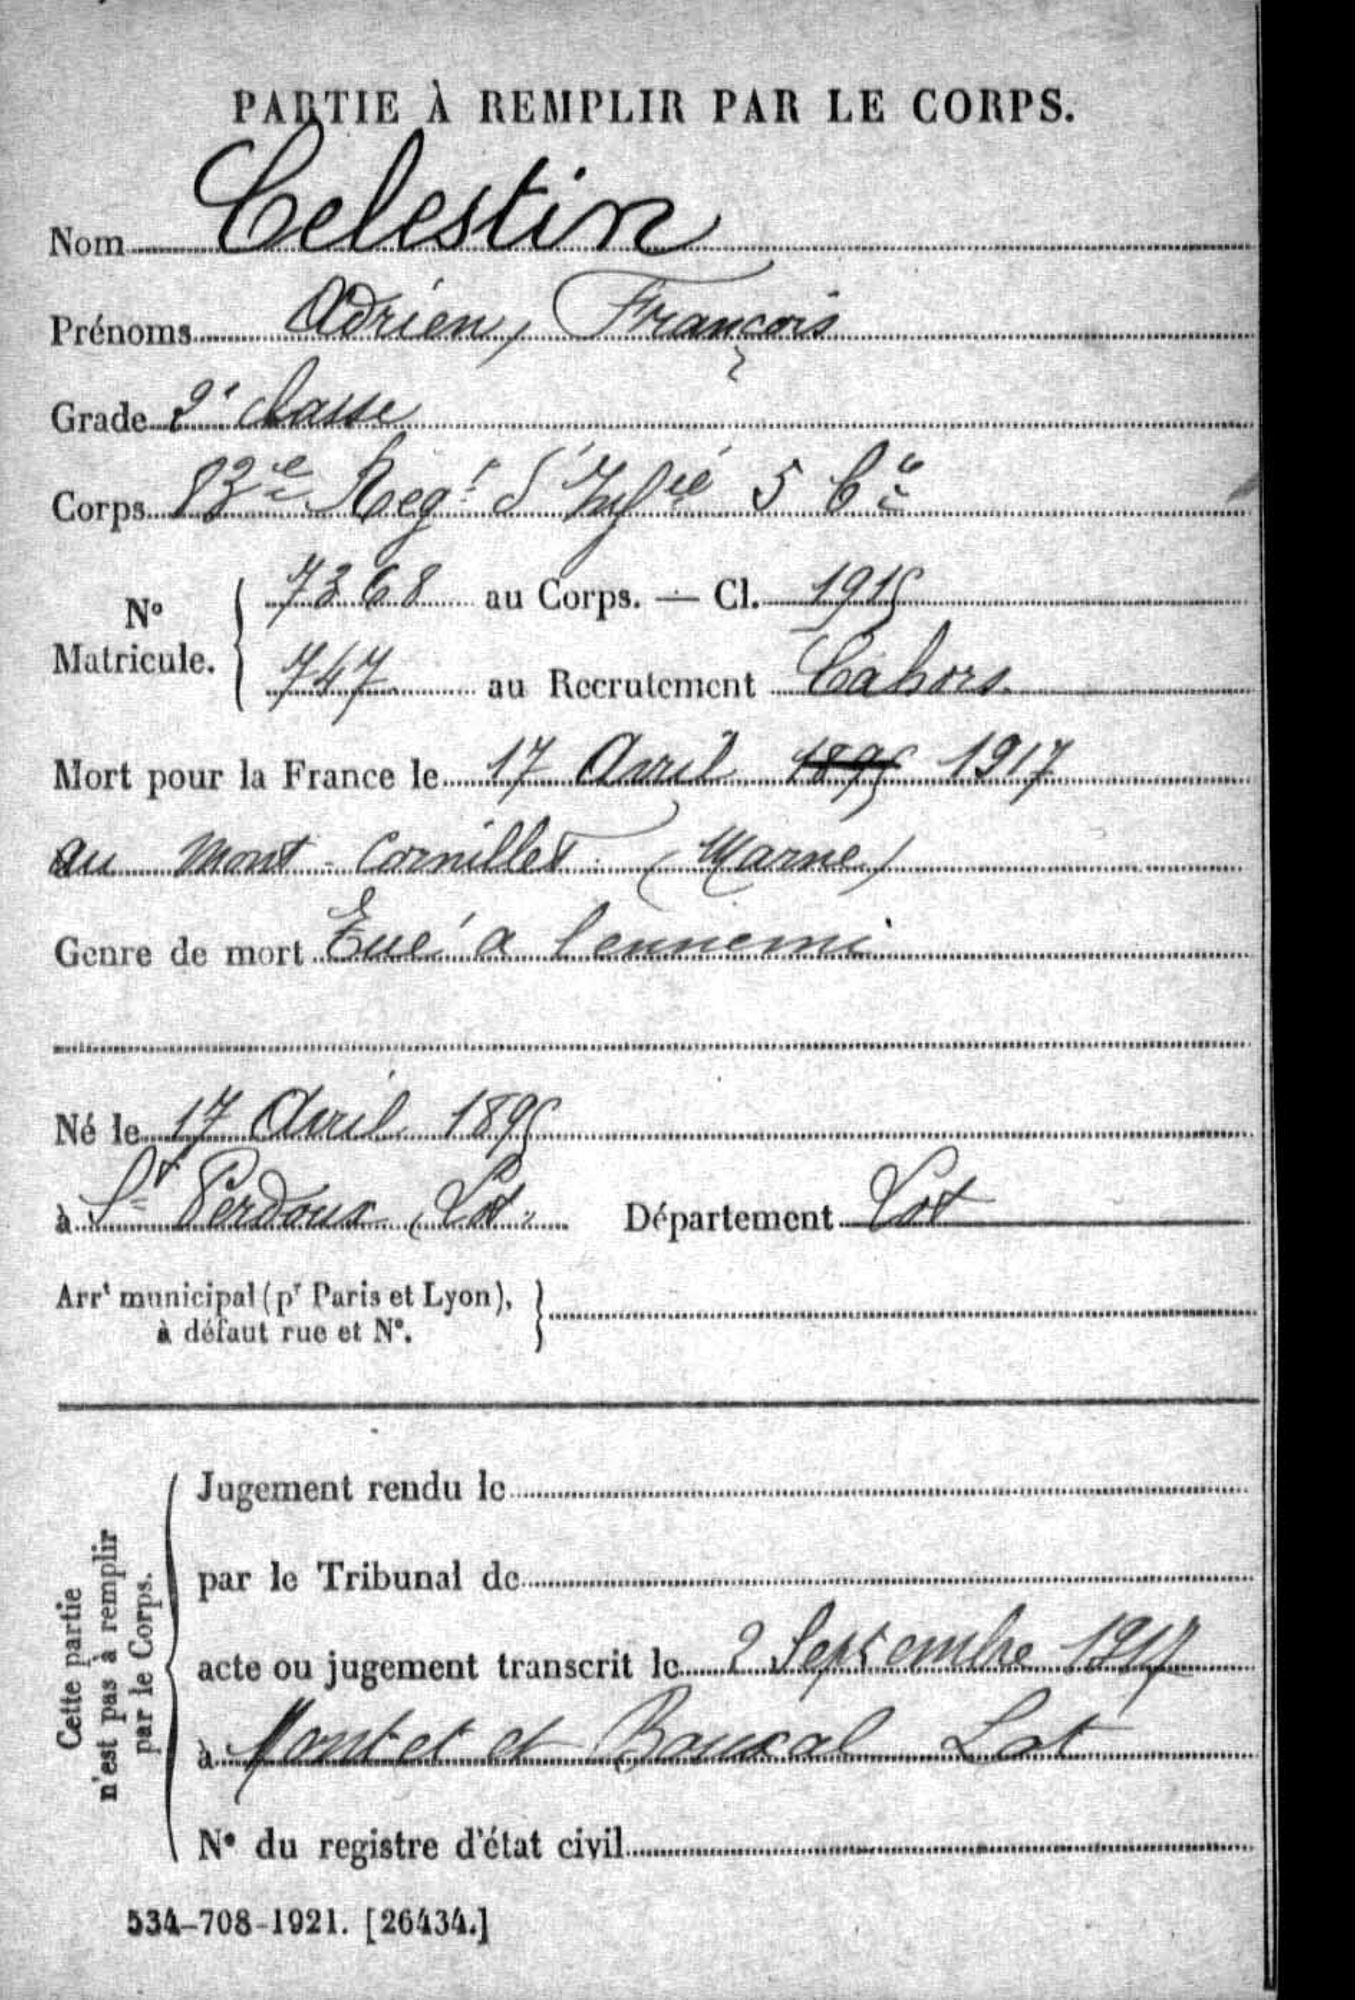 PARTIE À REMPLIR PAR LE CORPS.
Nom Celestin
Prénoms Adrien, François
Grade 2e classe
Corps 83e Regt d'Infie 5 Cie
N° Matricule. { 7368 au Corps. — Cl. 1915
747 au Recrutement Cahors
Mort pour la France le 17 Avril 1895 1917
au Mont Cornillet (Marne)
Genre de mort Tué a l'ennemi
Né le 17 Avril 1895
à St Perdoux (Lot) Département Lot
Arrt municipal (pr Paris et Lyon), }
à défaut rue et N°.
Cette partie
n'est pas à remplir
par le Corps.
Jugement rendu le
par le Tribunal de
acte ou jugement transcrit le 2 Septembre 1917
à Montet et Bouxal Lot
N° du registre d'état civil
534-708-1921. [26434.]